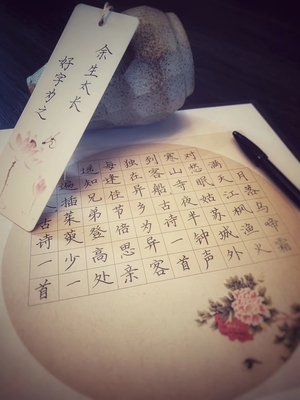 余生太长
好字为之
月落乌啼霜
满天江枫渔火
对愁眠姑苏城外
寒山寺夜半钟声
到客船古诗一首
独在异乡为异客
每逢佳节倍思亲
遥知兄弟登高处
遍插茱萸少一
人古诗一首